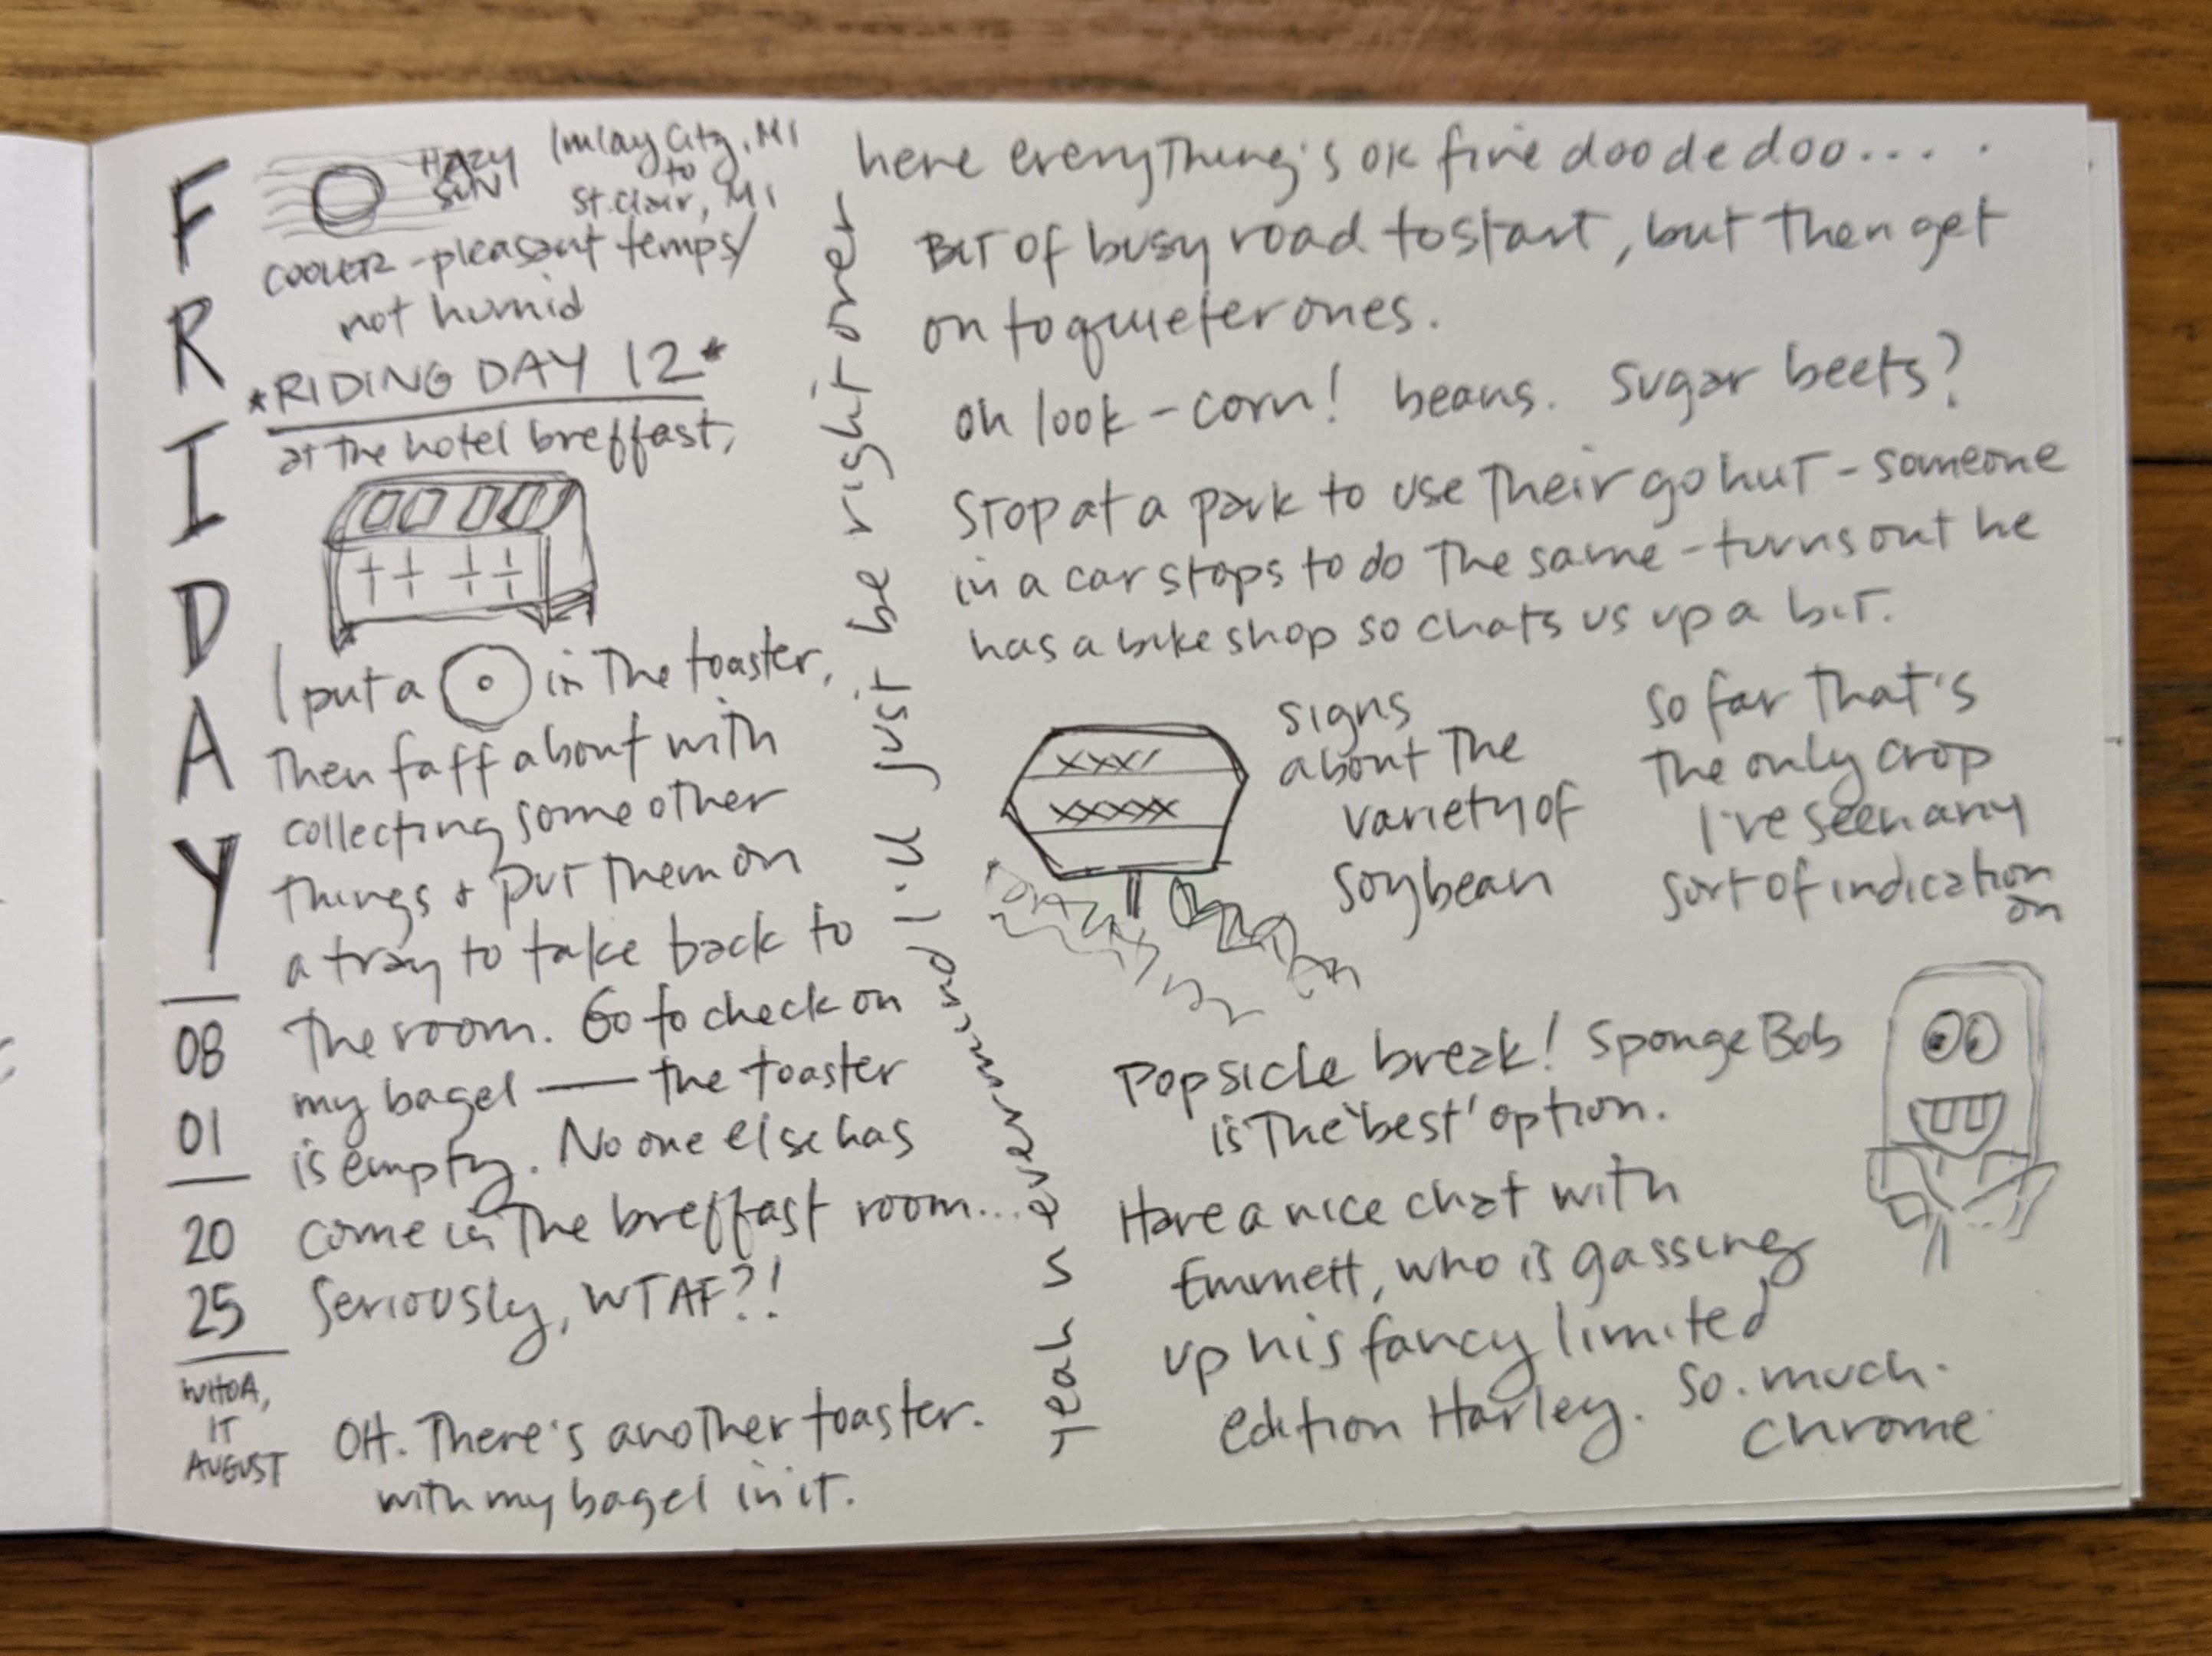 FRIDAY
08
01
20
25
WHOA,
IT
AUGUST
HAZY
SUN
Imlay City, MI
to
St. Clair, MI
COOLER - pleasant temps/
not humid
*RIDING DAY 12*
at the hotel breffast,
I put a in the toaster,
then faff about with
collecting some other
things + put them on
a tray to take back to
the room. Go to check on
my bagel — the toaster
is empty. No one else has
come in the breffast room...
Seriously, WTAF?!
OH. There's another toaster.
with my bagel in it.
Yeah so nevermind I'll just be right over
here everything's ok fine doo de doo....
Bit of busy road to start, but then get
on to quieter ones.
oh look - corn! beans. Sugar beets?
Stop at a park to use their go hut - someone
in a car stops to do the same - turns out he
has a bike shop so chats us up a bit.
signs
about the
variety of
soybean
so far that's
the only crop
I've seen any
sort of indication
on
Popsicle break! SpongeBob
is the 'best' option.
Have a nice chat with
Emmett, who is gassing
up his fancy limited
edition Harley. So. much.
chrome